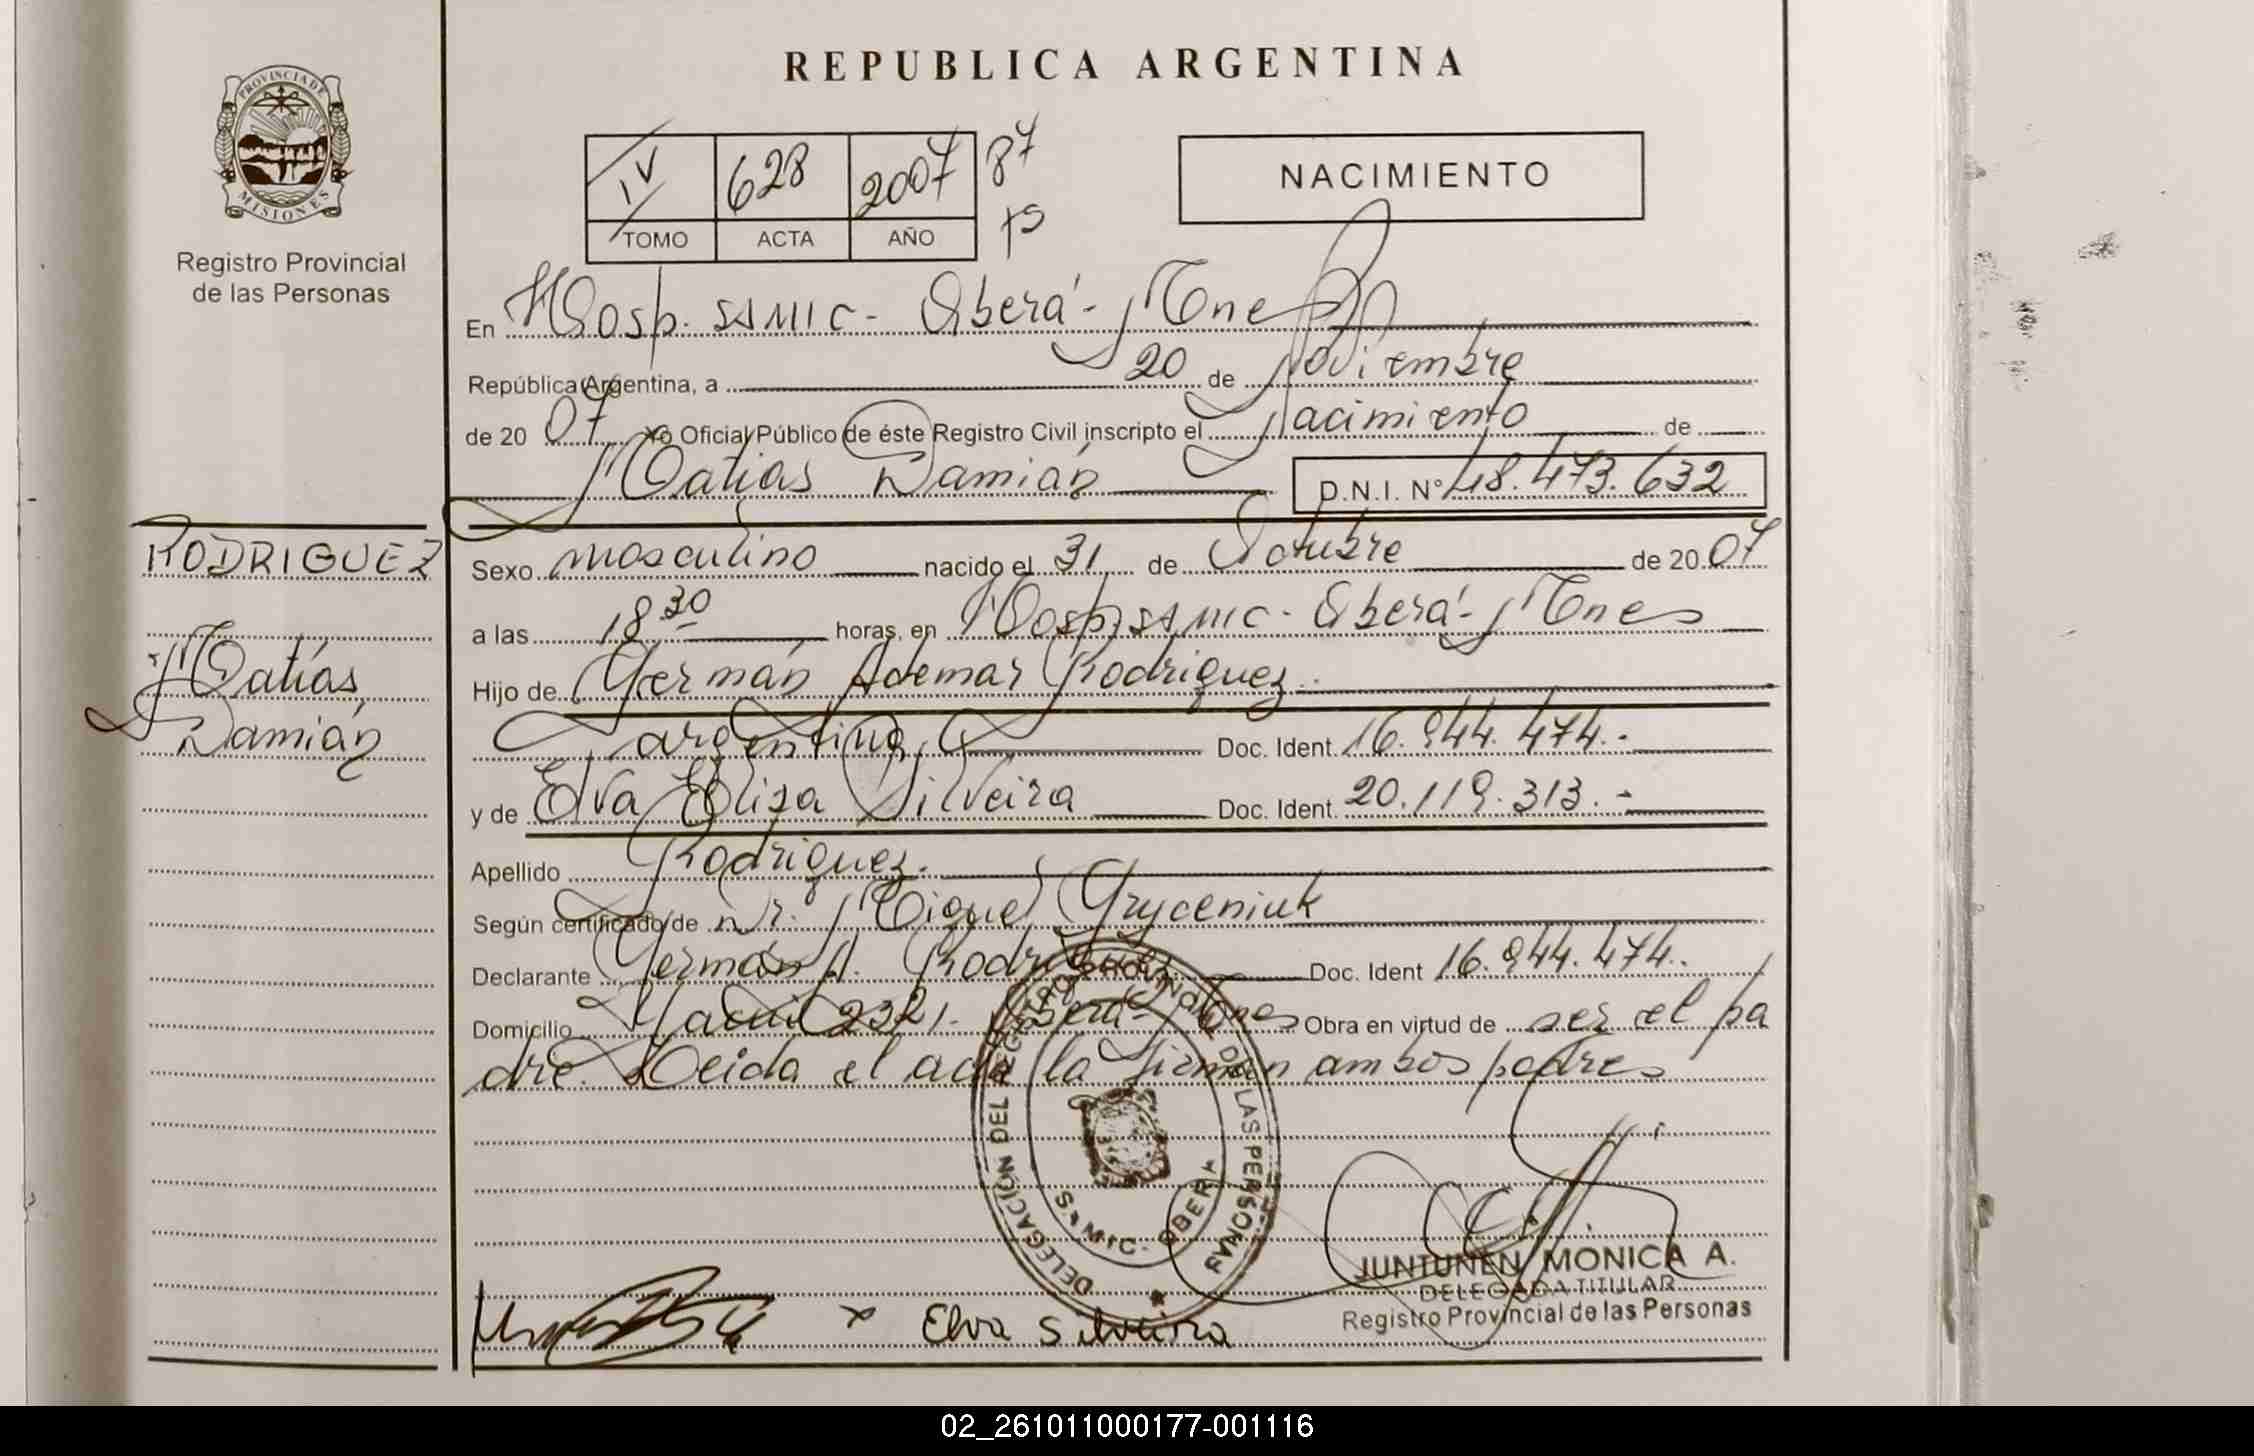 REPUBLICA ARGENTINA
PROVINCIA DE
MISIONES
Registro Provincial
de las Personas
IV 628 2007 87
TOMO ACTA AÑO
NACIMIENTO
En Hosp. SAMIC - Oberá - Mnes
República Argentina, a 20 de Noviembre
de 20 07 Yo Oficial Público de éste Registro Civil inscripto el Nacimiento de
Matías Damián D.N.I. Nº 48.473.632
RODRIGUEZ
Matías
Damián
Sexo masculino nacido el 31 de Octubre de 20 07
a las 18 30 horas, en Hosp. SAMIC - Oberá - Mnes
Hijo de Germán Ademar Rodriguez
argentino Doc. Ident. 16.944.474.-
y de Elva Eliza Silveira Doc. Ident. 20.119.313.-
Apellido Rodriguez.
Según certificado de Dr. Miguel Gryceniuk
Declarante Germán A. Rodriguez Doc. Ident 16.944.474.
Domicilio 2321. Oberá - Mnes Obra en virtud de ser el pa
dre. Leida el acta la firman ambos padres
DELEGACIÓN DEL REGISTRO PROVINCIAL DE LAS PERSONAS
SAMIC - OBERA
x Elva Silveira
JUNTUNEN MONICA A.
DELEGADA TITULAR
Registro Provincial de las Personas
02_261011000177-001116